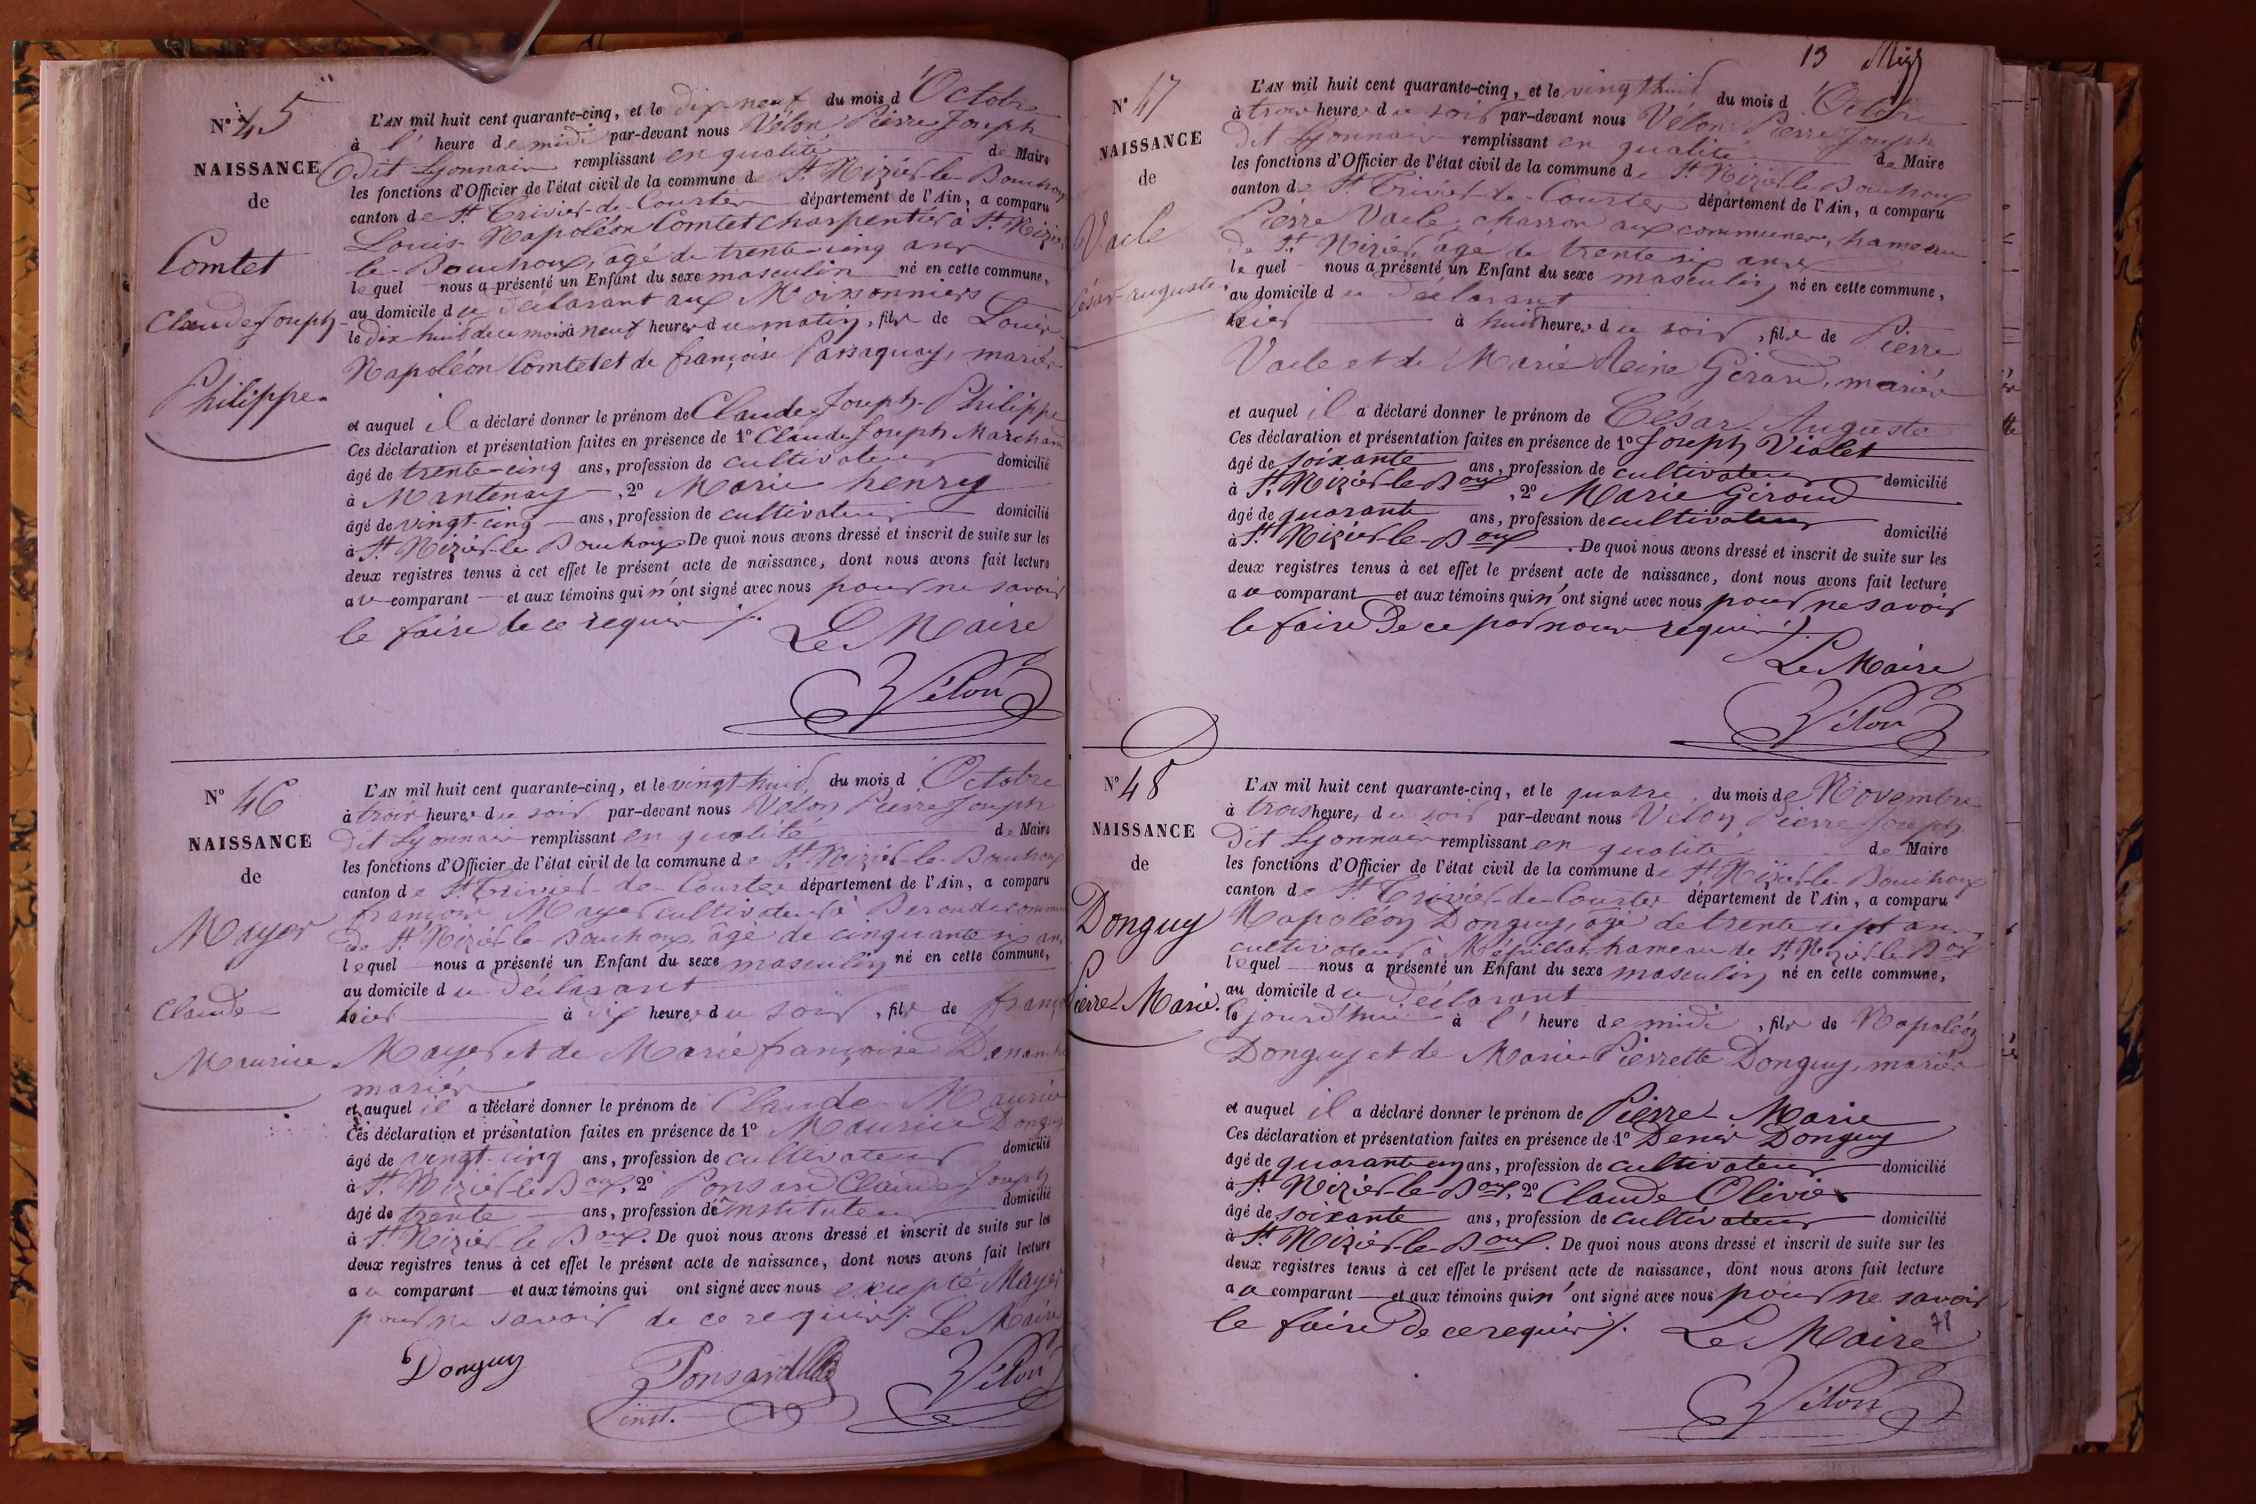 N° 45
NAISSANCE
de
Comtet
Claude Joseph
Philippe.
L'AN mil huit cent quarante-cinq, et le dix neuf du mois d'Octobre
à l' heure de midi par-devant nous Vélon Pierre Joseph
dit Lyonnais remplissant en qualité de Maire
les fonctions d'Officier de l'état civil de la commune de St Nizier-le-Bouchoux
canton de St Trivier-de-Courtes département de l'Ain, a comparu
Louis Napoléon Comtet charpentier à St Nizier
le-Bouchoux, agé de trente-cinq ans
lequel nous a présenté un Enfant du sexe masculin né en cette commune,
au domicile du déclarant aux Moissonniers
le dix huit de ce mois à neuf heures du matin, fils de Louis
Napoléon Comtet et de françoise Passaquay, mariés
et auquel il a déclaré donner le prénom de Claude Joseph-Philippe
Ces déclaration et présentation faites en présence de 1° Claude Joseph Marchand
âgé de trente-cinq ans, profession de cultivateur domicilié
à Mantenay, 2° Marie henry
âgé de vingt-cinq ans, profession de cultivateur domicilié
à St Nizier-le Bouchoux De quoi nous avons dressé et inscrit de suite sur les
deux registres tenus à cet effet le présent acte de naissance, dont nous avons fait lecture
au comparant et aux témoins qui n'ont signé avec nous pour ne savoir
le faire de ce requis /.
Le Maire
Vélon
N° 46
NAISSANCE
de
Mayer
Claude
Maurice.
L'AN mil huit cent quarante-cinq, et le vingt huit du mois d'Octobre
à trois heures du soir par-devant nous Vélon Pierre Joseph
dit Lyonnais remplissant en qualité de Maire
les fonctions d'Officier de l'état civil de la commune de St Nizier-le-Bouchoux
canton de St Trivier-de-Courtes département de l'Ain, a comparu
françois Mayer cultivateur à commune
de St Nizier-le-Bouchoux, âgé de cinquante six ans
lequel nous a présenté un Enfant du sexe masculin né en cette commune,
au domicile du déclarant
hier à six heures du soir, fils de françois
Mayer et de Marie françoise
mariés
et auquel il a déclaré donner le prénom de Claude Maurice
Ces déclaration et présentation faites en présence de 1° Maurice Donguy
âgé de vingt-cinq ans, profession de cultivateur domicilié
à St Nizier-le-Boux, 2° Ponsard Claude Joseph
âgé de trente ans, profession d'instituteur domicilié
à St Nizier-le Boux. De quoi nous avons dressé et inscrit de suite sur les
deux registres tenus à cet effet le présent acte de naissance, dont nous avons fait lecture
au comparant et aux témoins qui ont signé avec nous excepté Mayer
pour ne savoir de ce requis /. Le Maire
Donguy Ponsard Vélon
inst.
13
N° 47
NAISSANCE
de
Vacle
César auguste.
L'AN mil huit cent quarante-cinq, et le vingt huit du mois d'Octobre
à trois heures du soir par-devant nous Vélon Pierre Joseph
dit Lyonnais remplissant en qualité de Maire
les fonctions d'Officier de l'état civil de la commune de St Nizier-le-Bouchoux
canton de St Trivier-de-Courtes département de l'Ain, a comparu
Pierre Vacle, charron aux communes, hameau
de St Nizier, âgé de trente six ans
lequel nous a présenté un Enfant du sexe masculin né en cette commune,
au domicile du déclarant
hier à huit heures du soir, fils de Pierre
Vacle et de Marie Reine Girard, mariés
et auquel il a déclaré donner le prénom de César Auguste
Ces déclaration et présentation faites en présence de 1° Joseph Violet
âgé de soixante ans, profession de cultivateur domicilié
à St Nizier-le-Boux, 2° Marie Giroud
âgé de quarante ans, profession de cultivateur domicilié
à St Nizier-le-Boux. De quoi nous avons dressé et inscrit de suite sur les
deux registres tenus à cet effet le présent acte de naissance, dont nous avons fait lecture
au comparant et aux témoins qui n'ont signé avec nous pour ne savoir
le faire de ce par nous requis /.
Le Maire
Vélon
N° 48
NAISSANCE
de
Donguy
Pierre Marie.
L'AN mil huit cent quarante-cinq, et le quatre du mois de Novembre
à trois heures du soir par-devant nous Vélon Pierre Joseph
dit Lyonnais remplissant en qualité de Maire
les fonctions d'Officier de l'état civil de la commune de St Nizier-le-Bouchoux
canton de St Trivier-de-Courtes département de l'Ain, a comparu
Napoléon Donguy, âgé de trente sept ans
cultivateur à hameau de St Nizier-le-Boux
lequel nous a présenté un Enfant du sexe masculin né en cette commune,
au domicile du déclarant
cejourd'hui à l' heure de midi, fils de Napoléon
Donguy et de Marie Pierrette Donguy, mariés
et auquel il a déclaré donner le prénom de Pierre Marie
Ces déclaration et présentation faites en présence de 1° Denis Donguy
âgé de quarante un ans, profession de cultivateur domicilié
à St Nizier-le-Boux, 2° Claude Olivier
âgé de soixante ans, profession de cultivateur domicilié
à St Nizier-le-Boux. De quoi nous avons dressé et inscrit de suite sur les
deux registres tenus à cet effet le présent acte de naissance, dont nous avons fait lecture
au comparant et aux témoins qui n'ont signé avec nous pour ne savoir
le faire de ce requis /. Le Maire
78
Vélon